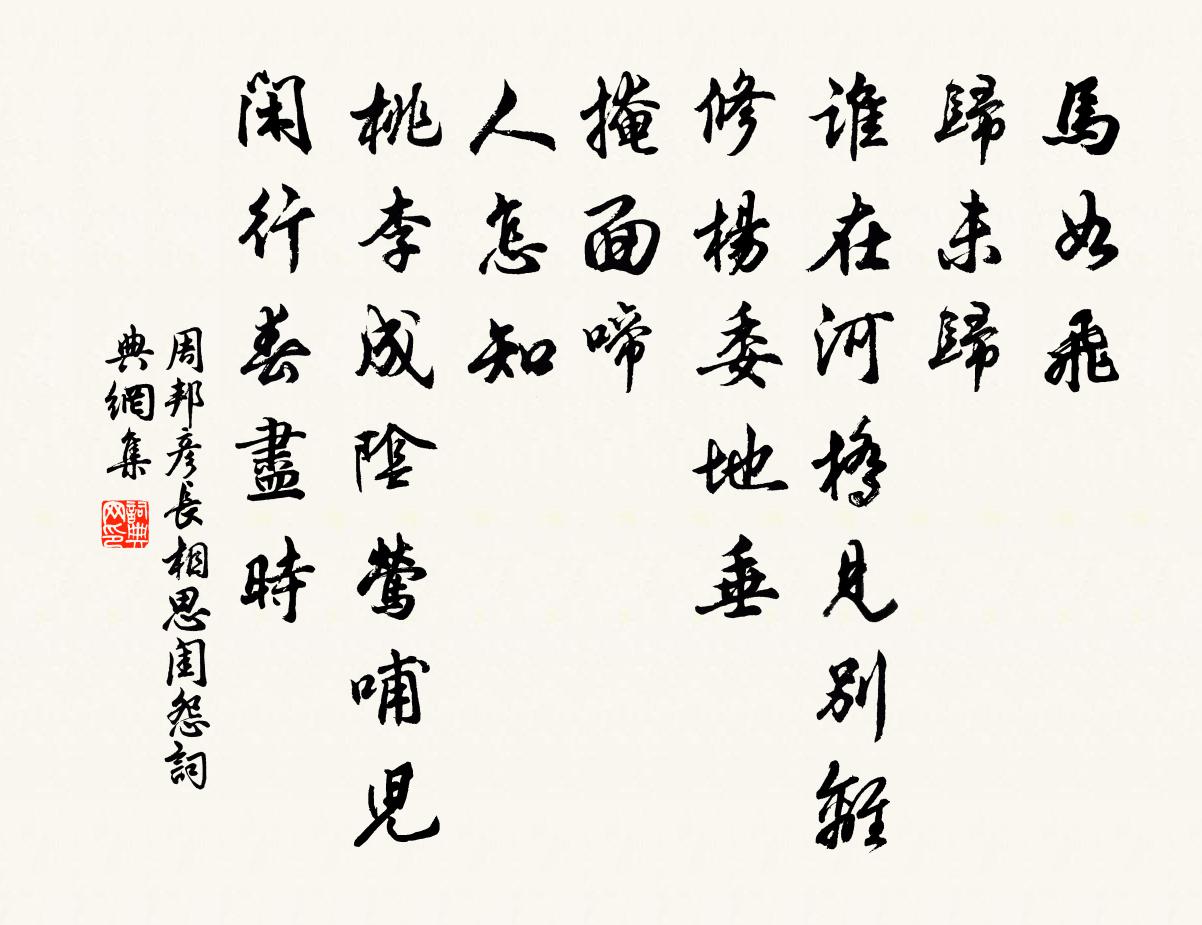 馬如飛
歸未歸
誰在河橋見別離
修楊委地垂
掩面啼
人怎知
桃李成陰鶯哺兒
閑行春盡時
周邦彥長相思閨怨詞
典網集
詞典
网印